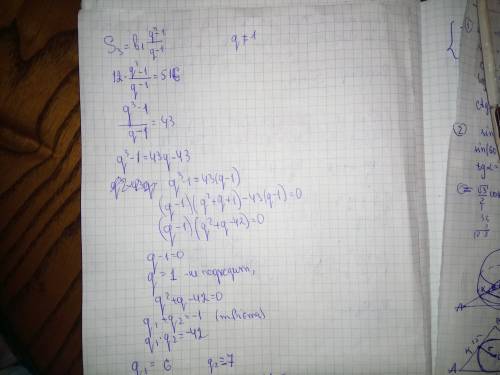 S₃ = b₁ (q³-1)/(q-1)   q ≠ 1
12 · (q³-1)/(q-1) = 516
(q³-1)/(q-1) = 43
q³-1 = 43q-43
q³-1 = 43(q-1)
(q-1)(q²+q+1)-43(q-1)=0
(q-1)(q²+q-42)=0
q-1=0
q = 1 -не подходит,
q²+q-42=0
q₁+q₂=-1 (т.Виета)
q₁·q₂=-42
q₁ = 6   q₂=-7
2
sin